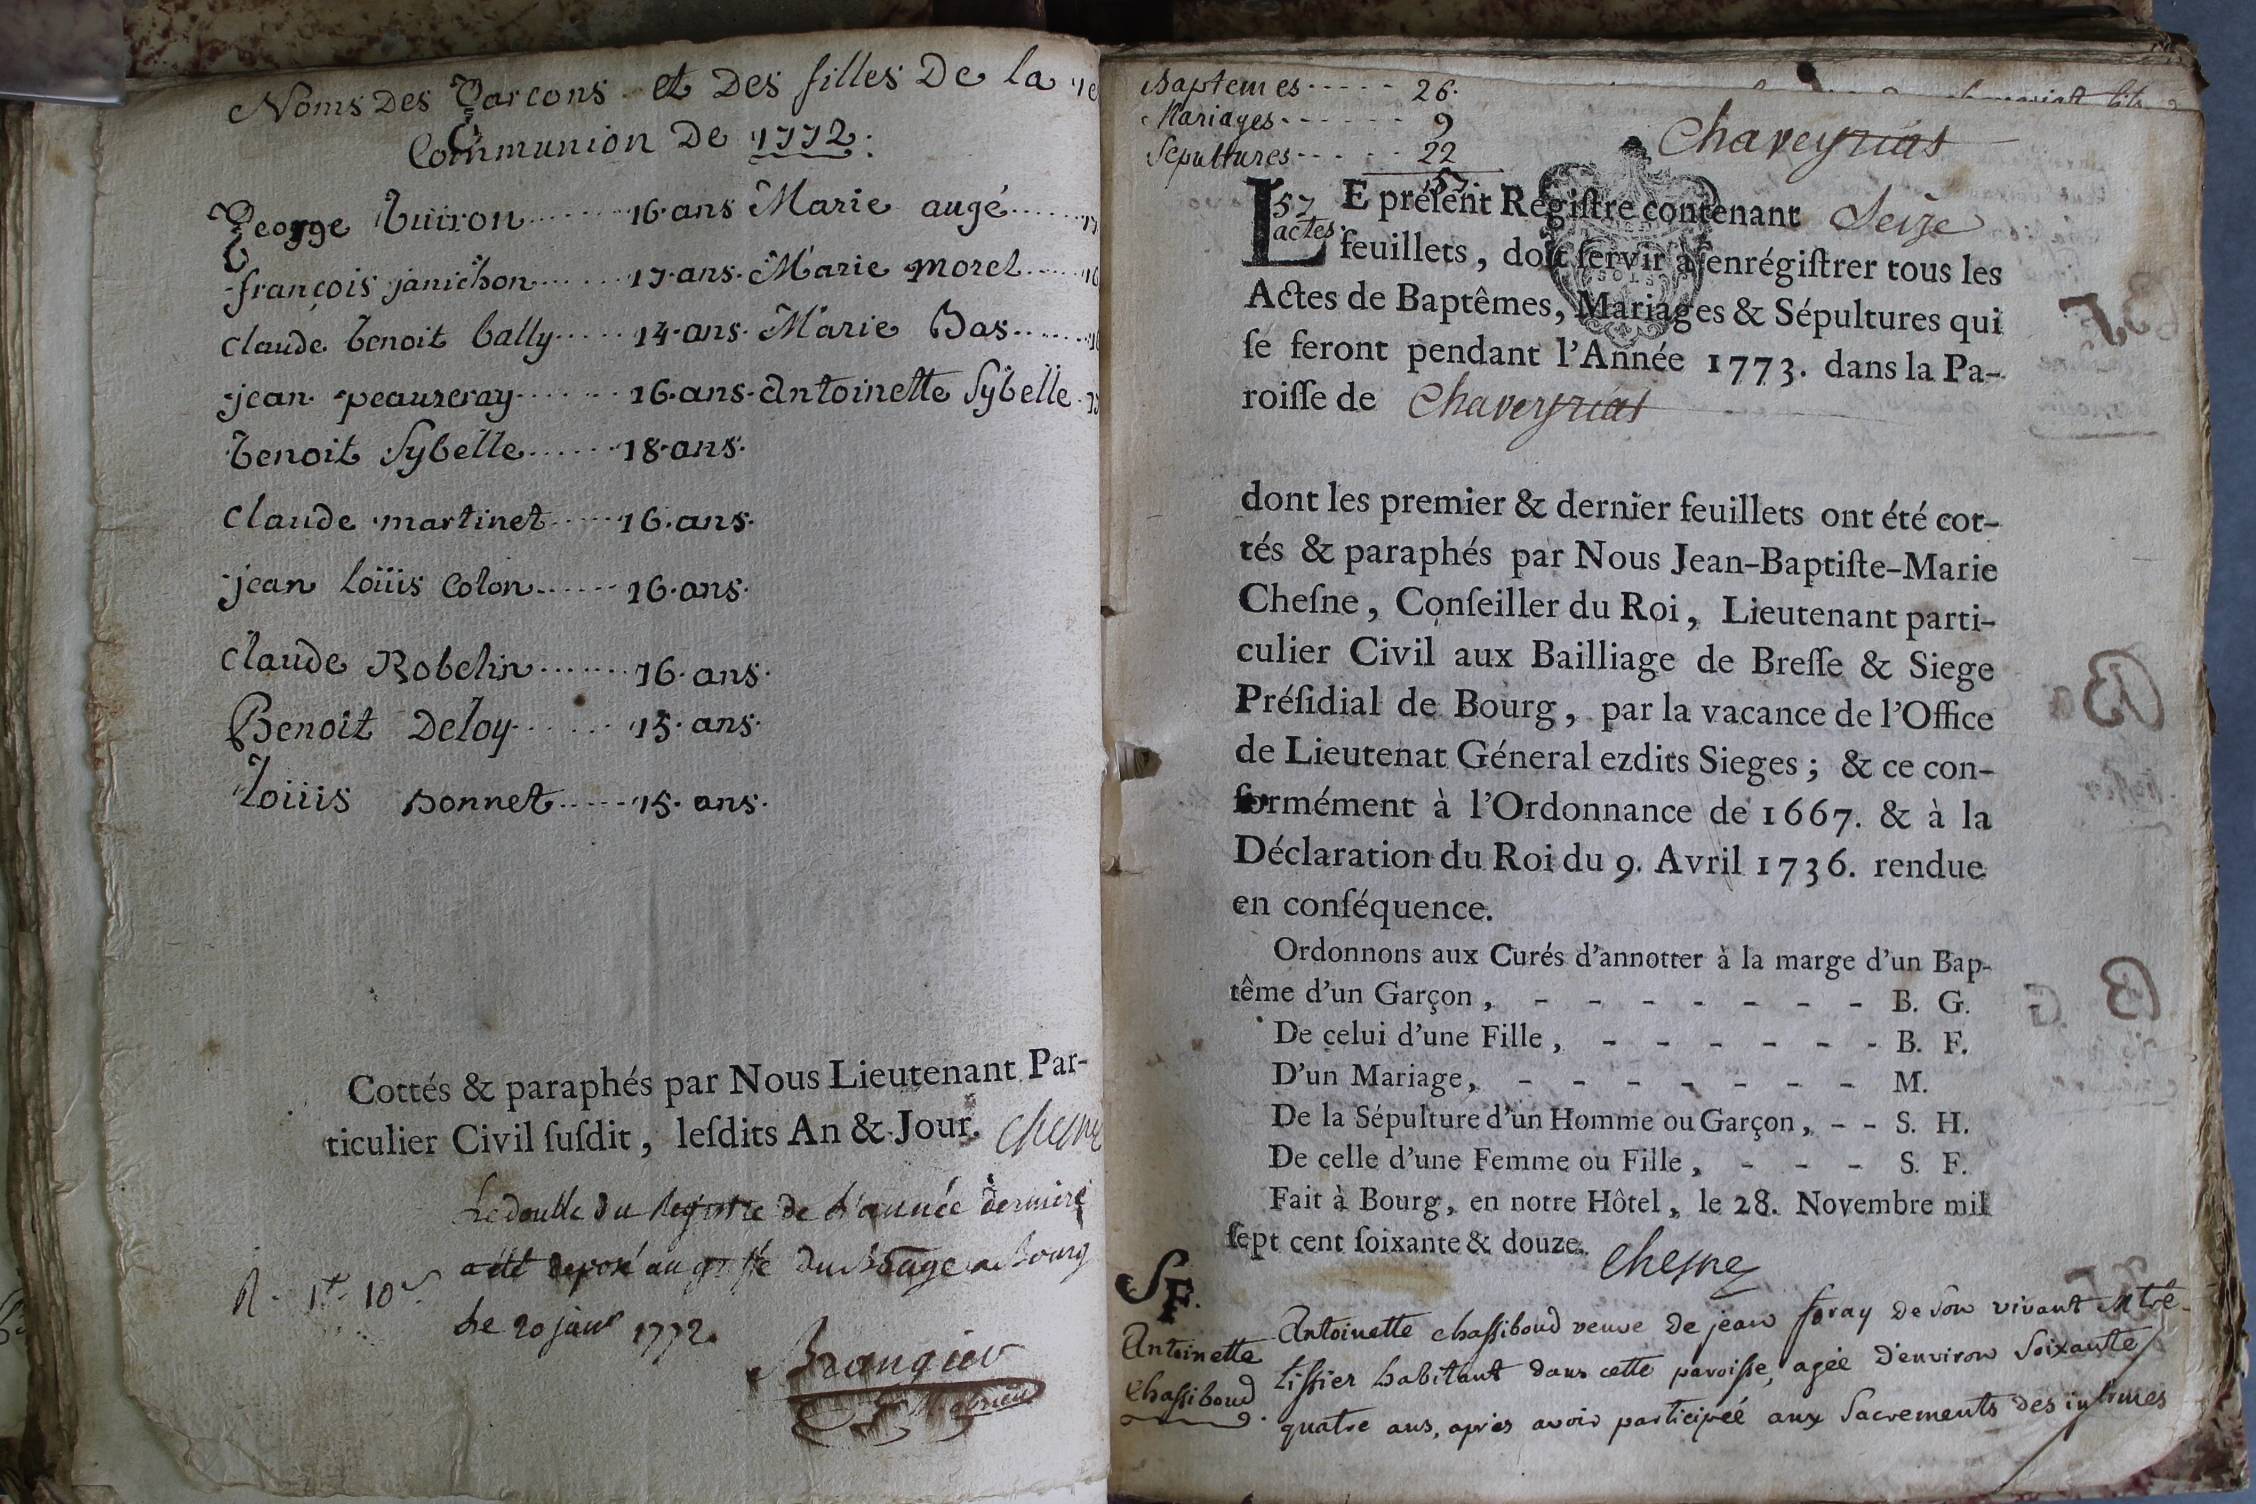 Noms Des Garcons et Des filles De la
Communion De 1772.
George Buiron ...... 16 ans Marie augé ......
françois janichon ...... 17 ans. Marie morel ......
claude benoit bally ..... 14 ans. Marie Bas ......
jean peauzeray ...... 16 ans. Antoinette Sybelle
benoit Sybelle ...... 18 ans.
claude martinet ..... 16 ans.
jean loüis Colon ...... 16 ans.
claude Robelin ....... 16 ans.
Benoit Deloy ...... 15 ans.
loüis Bonnet ..... 15 ans.
Cottés & paraphés par Nous Lieutenant Par-
ticulier Civil ſuſdit, leſdits An & Jour. Chesne
Le double du Registre de l'année derniere
a été deposé au greffe du Bâge a Bourg
Le 20 janv 1772.
Brangier
Baptemes ..... 26.
Mariages ...... 9
Sepultures ..... 22
57
Chaveyriat
57
actes.
LE préſent Régiſtre contenant Seize
feuillets, doit ſervir à enrégiſtrer tous les
Actes de Baptêmes, Mariages & Sépultures qui
ſe feront pendant l'Année 1773. dans la Pa-
roiſſe de Chaveyriat
dont les premier & dernier feuillets ont été cot-
tés & paraphés par Nous Jean-Baptiſte-Marie
Cheſne, Conſeiller du Roi, Lieutenant parti-
culier Civil aux Bailliage de Breſſe & Siege
Préſidial de Bourg, par la vacance de l'Office
de Lieutenat Géneral ezdits Sieges; & ce con-
formément à l'Ordonnance de 1667. & à la
Déclaration du Roi du 9. Avril 1736. rendue
en conſéquence.
Ordonnons aux Curés d'annotter à la marge d'un Bap-
tême d'un Garçon, - - - - - - - B. G.
De celui d'une Fille, - - - - - - B. F.
D'un Mariage, - - - - - - - M.
De la Sépulture d'un Homme ou Garçon, - - S. H.
De celle d'une Femme ou Fille, - - - S. F.
Fait à Bourg, en notre Hôtel, le 28. Novembre mil
ſept cent ſoixante & douze. Chesne
SF.
Antoinette
Chassiboud
Antoinette chassiboud veuve de jean foray de son vivant
tissier habitant dans cette paroisse, agée d'environ soixante
quatre ans, après avoir participée aux Sacrements des infirmes